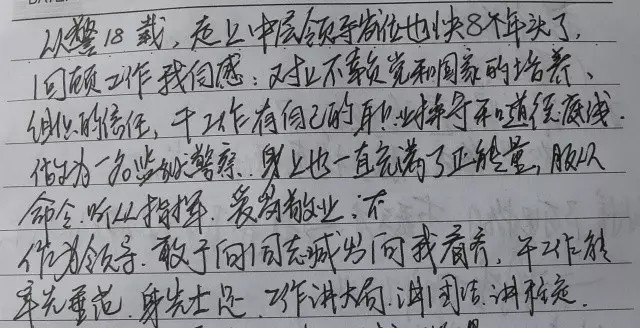 从警18载，走上中层领导岗位也快8个年头了，
回顾工作我倍感：对上不辜负党和国家的培养、
组织的信任，干工作有自己的职业操守和道德底线。
作为一名监狱警察，身上也一直充满了正能量，服从
命令、听从指挥、爱岗敬业、不
作为领导，敢于向同志喊出向我看齐，干工作能
率先垂范，身先士足，工作讲大局、讲团结、讲稳定。